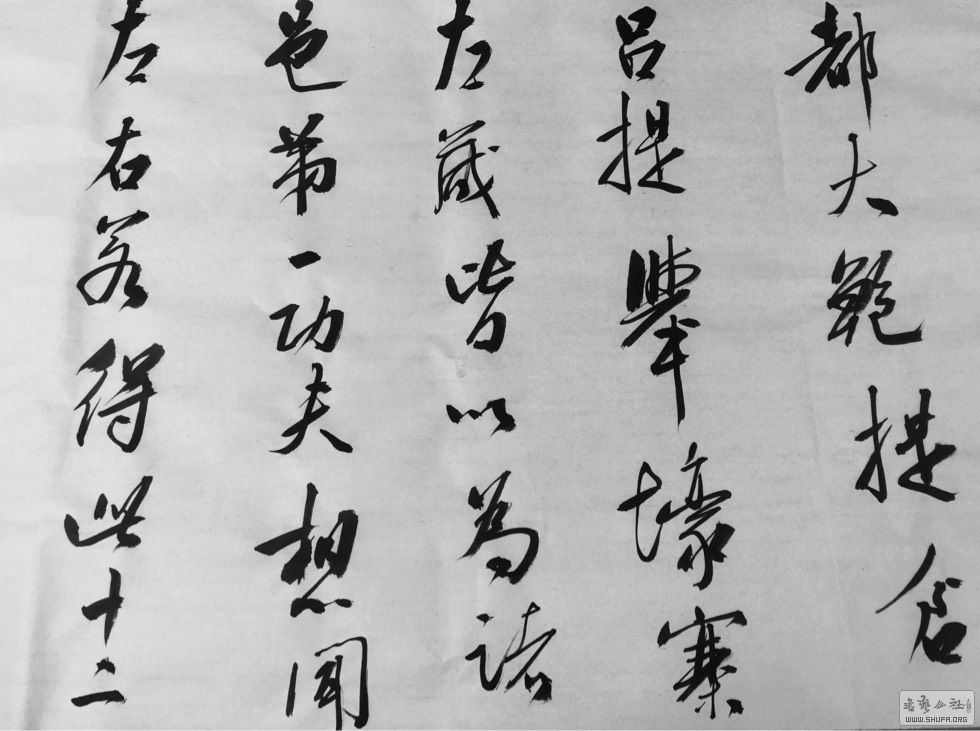 都大範提倉
呂提舉壕寨
左藏皆以為諸
邑第一功夫想聞
左右若得此十二
書藝公社
WWW.SHUFA.ORG